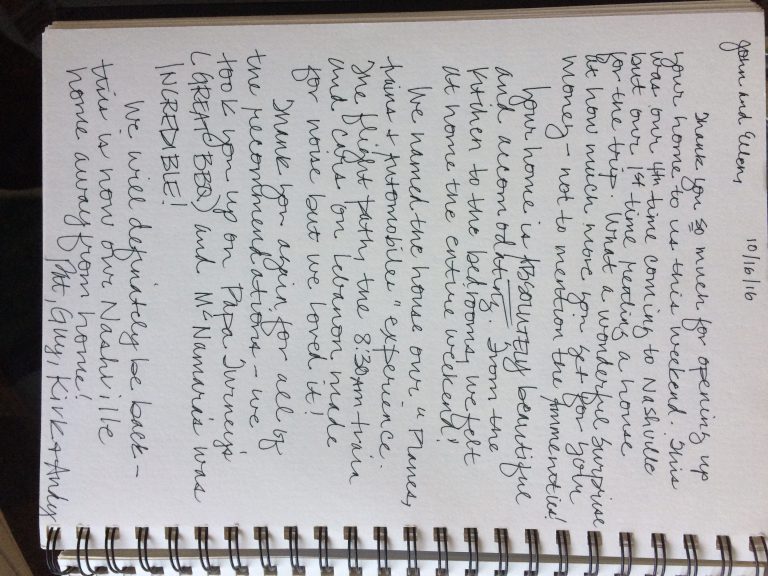 10/16/16
John and Ellen,
Thank you so much for opening up
your home to us this weekend. This
was our 4th time coming to Nashville
but our 1st time renting a house
for the trip. What a wonderful surprise
at how much more you get for your
money - not to mention the ammenities!
Your home is ABSOLUTELY beautiful
and accomodating. From the
kitchen to the bedrooms, we felt
at home the entire weekend!
We named the house our "Planes,
trains + Automobiles" experience.
The flight path, the 8:30am train
and cars on Lebanon made
for noise but we loved it!
Thank you again for all of
the recommendations - we
took you up on Papa Turney's
(GREAT BBQ) and McNamara's was
INCREDIBLE!
We will definitely be back -
this is now our Nashville
home away from home!
Pat, Guy, Kirk + Andy